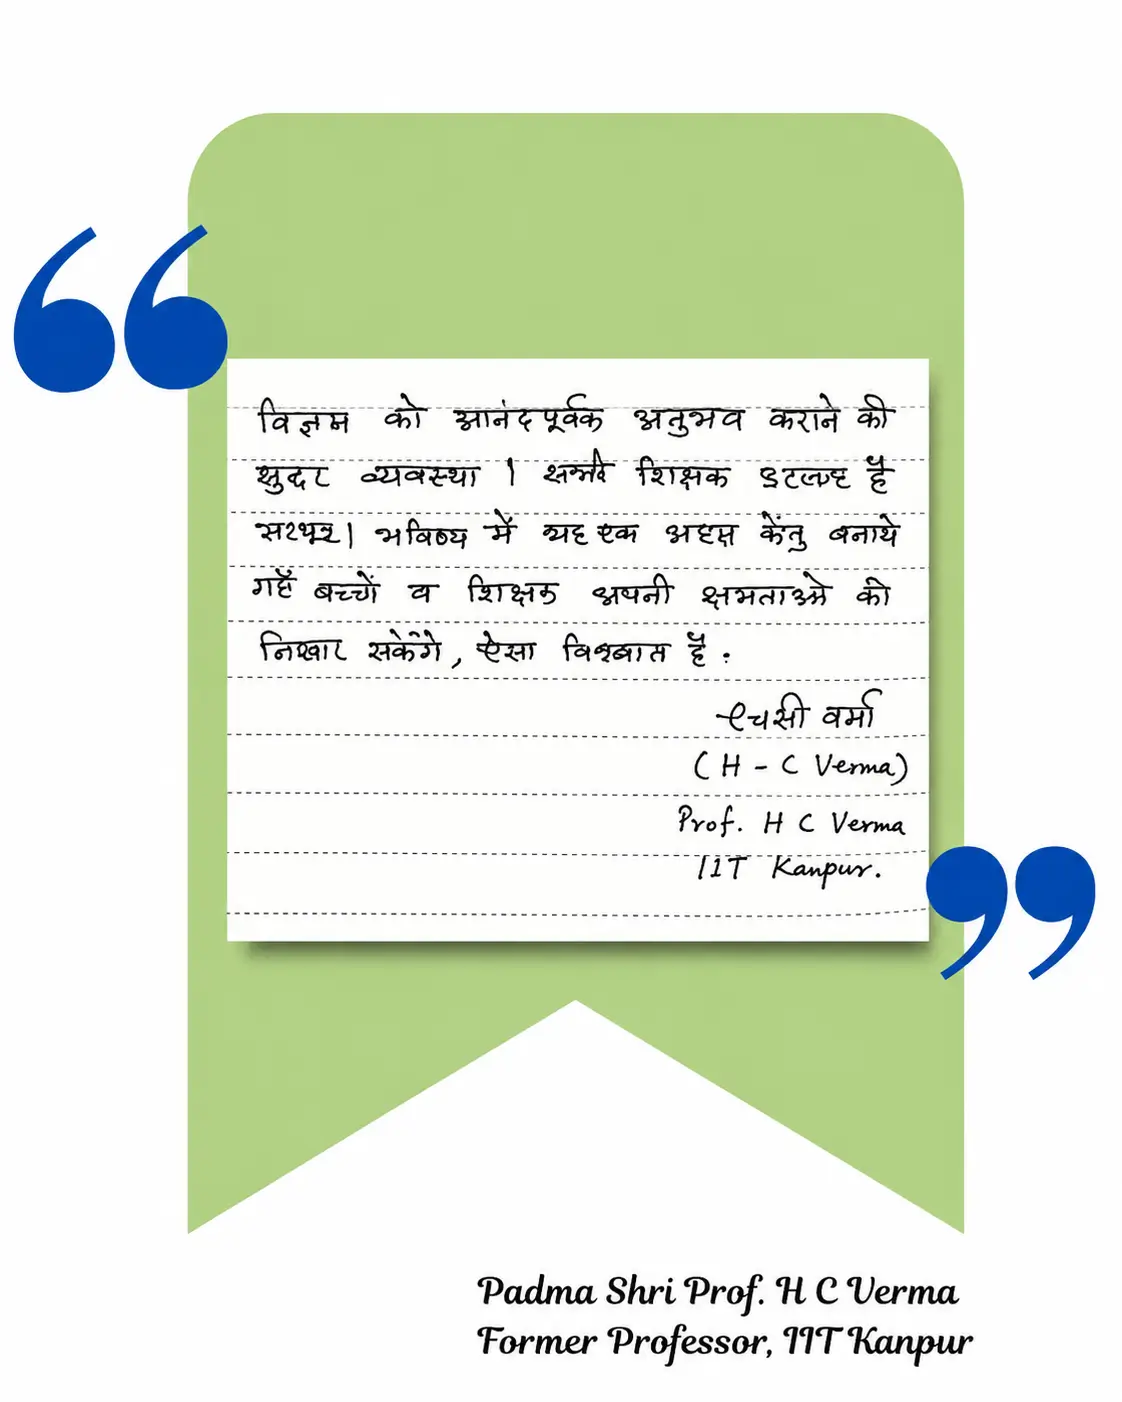 विज्ञान को आनंदपूर्वक अनुभव कराने की
सुंदर व्यवस्था । शिक्षक है
भविष्य में यह एक बनाये
बच्चों व शिक्षक अपनी क्षमताओं को
निखार सकेंगे, ऐसा विश्वास है .
एचसी वर्मा
(H - C Verma)
Prof. H C Verma
IIT Kanpur.
Padma Shri Prof. H C Verma
Former Professor, IIT Kanpur